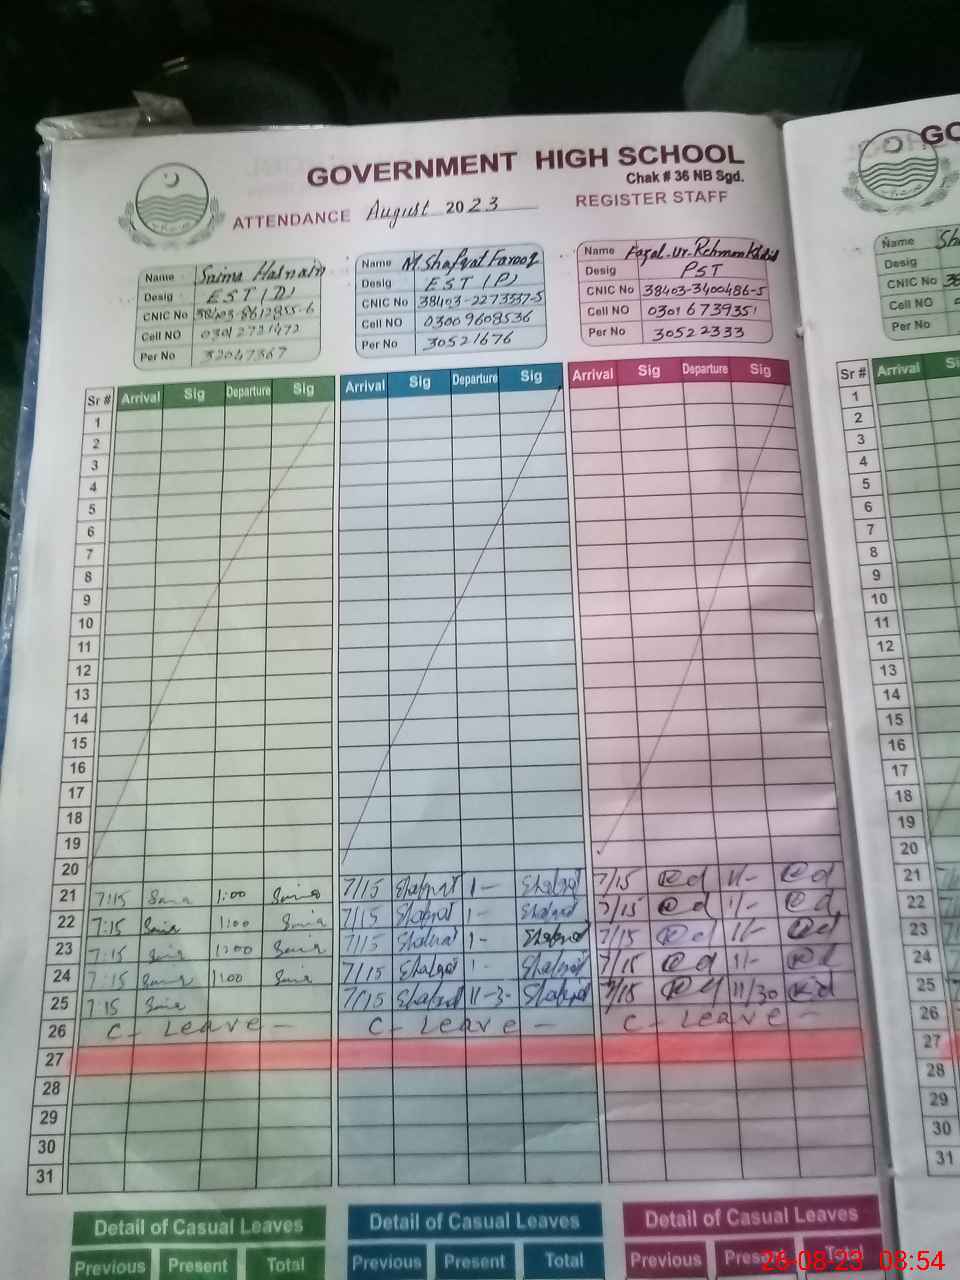 GOVERNMENT HIGH SCHOOL
Chak # 36 NB Sgd.
ATTENDANCE August 2023 REGISTER STAFF
Name Saima Hasnain
Desig EST (D)
CNIC No 38403-8612855-6
Cell NO 03012721472
Per No 32047367
Name M. Shafqat Farooq
Desig EST (P)
CNIC No 38403-2273337-5
Cell NO 03009608536
Per No 30521676
Name Fazal-Ur-Rehman Khalid
Desig PST
CNIC No 38403-3400486-5
Cell NO 03016739351
Per No 30522333
Sr # Arrival Sig Departure Sig Arrival Sig Departure Sig Arrival Sig Departure Sig
1
2
3
4
5
6
7
8
9
10
11
12
13
14
15
16
17
18
19
20
21 7:15 1:00 7/15 Shafqat 1- Shafqat 7/15 1/-
22 7:15 1:00 7/15 Shafqat 1- Shafqat 7/15 1/-
23 7:15 1:00 7/15 Shafqat 1- Shafqat 7/15 1/-
24 7:15 1:00 7/15 Shafqat 1- Shafqat 7/15 1/-
25 7:15 7/15 Shafqat 11-3- Shafqat 7/15 11/30
26 C- Leave - C- Leave - C- Leave -
27
28
29
30
31
Detail of Casual Leaves Detail of Casual Leaves Detail of Casual Leaves
Previous Present Total Previous Present Total Previous Present Total
GO
Name Sh
Desig
CNIC No 38
Cell NO
Per No
Sr # Arrival
1
2
3
4
5
6
7
8
9
10
11
12
13
14
15
16
17
18
19
20
21
22
23
24
25
26
27
28
29
30
31
26-08-23 08:54